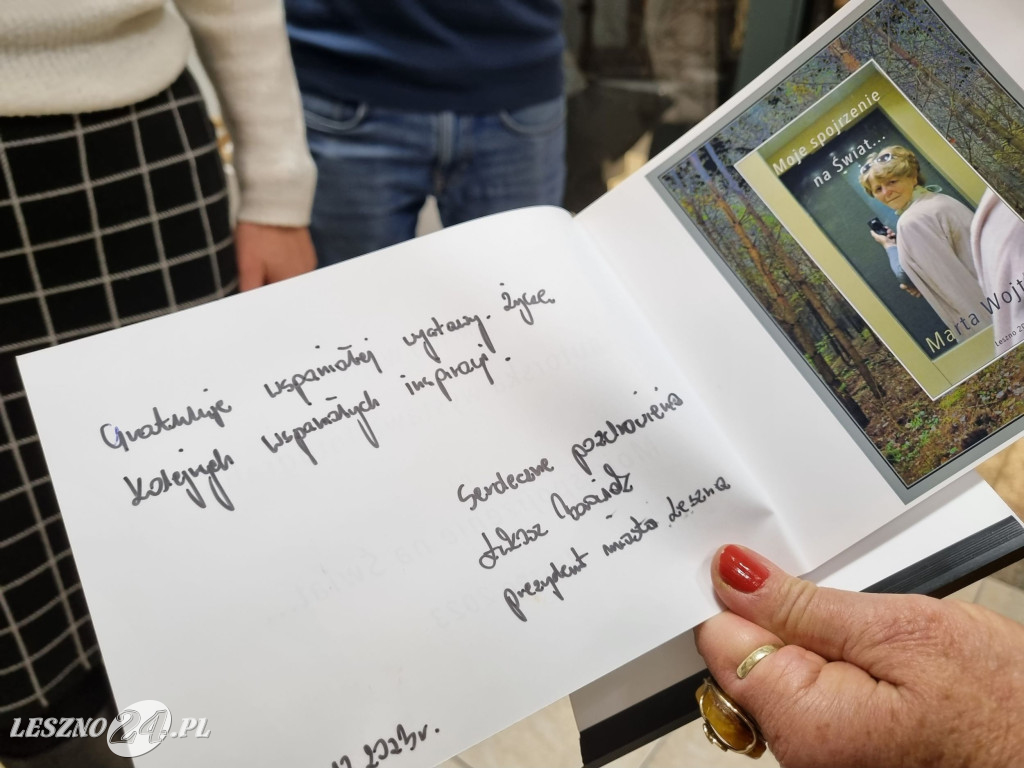 Gratuluję wspaniałej wystawy. Życzę
kolejnych wspaniałych inspiracji.
Serdeczne pozdrowienia
Łukasz Borowiak
prezydent miasta Leszna
2023r.
Moje spojrzenie
na Świat...
Marta Wojt
Leszno 20
LESZNO24.PL